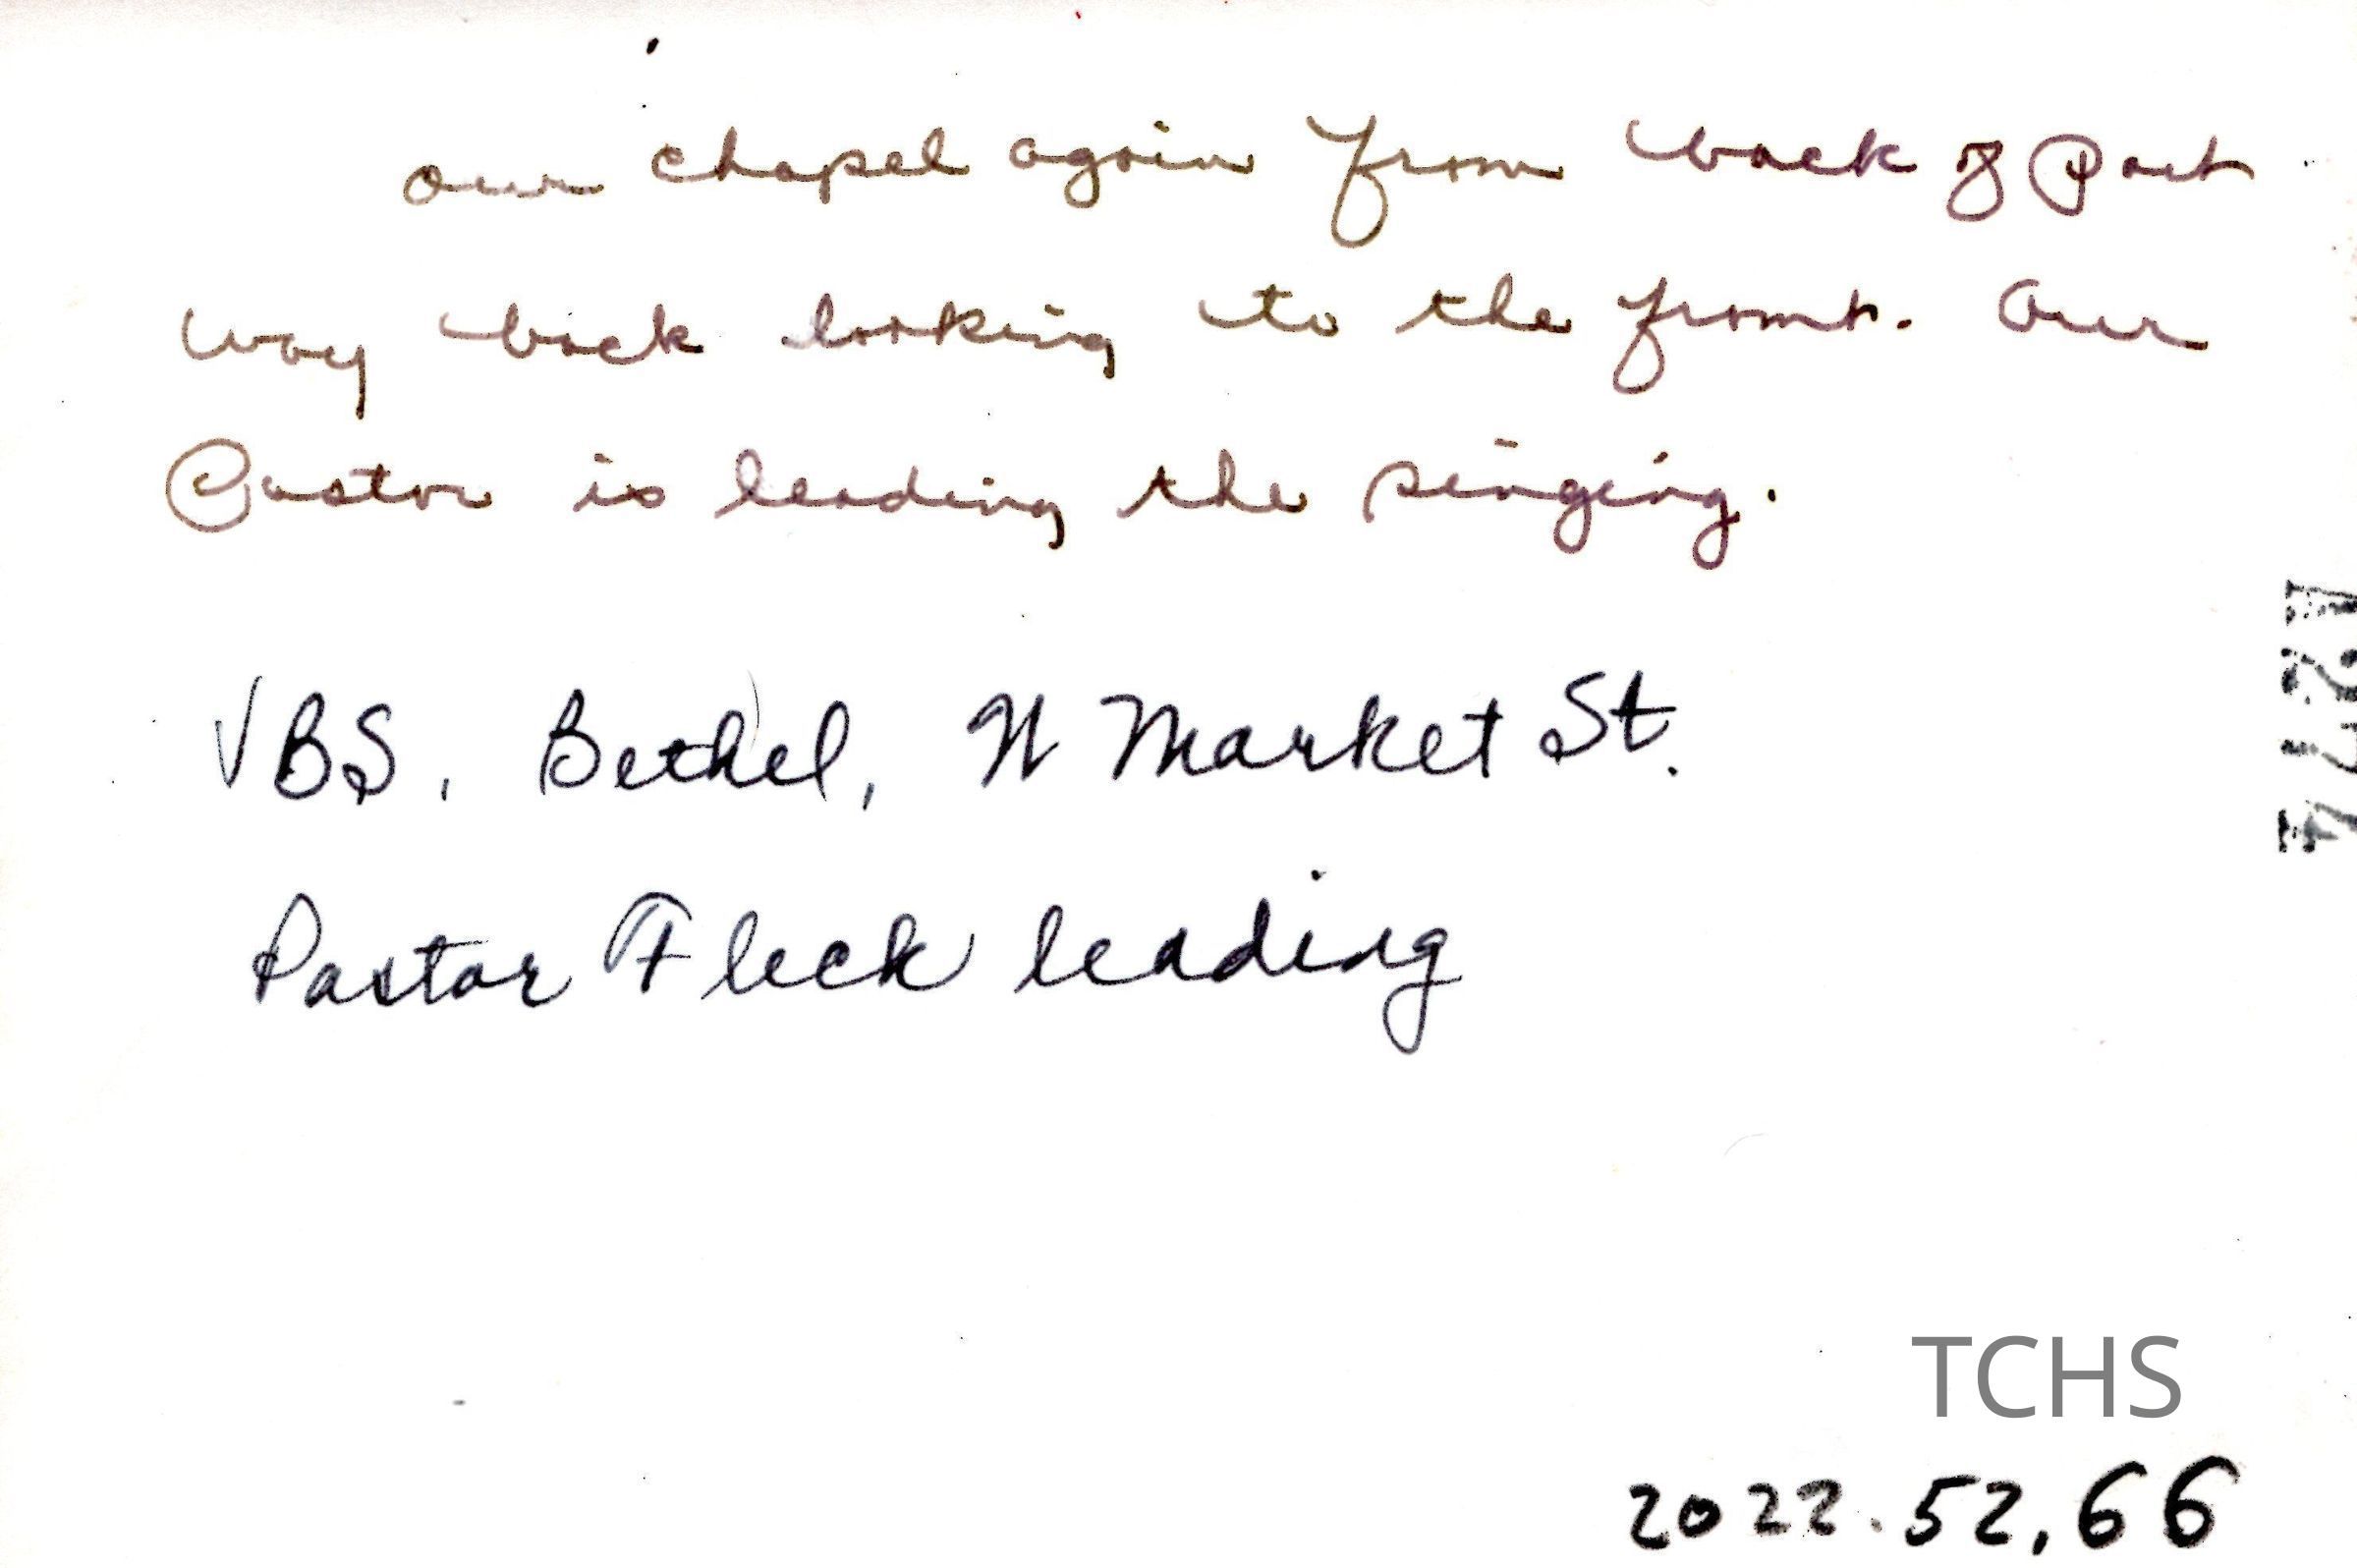 our chapel again from back of Part
way back looking to the front. Our
Pastor is leading the singing.
VBS, Bethel, N Market St.
Pastor Fleck leading
TCHS
2022.52.66